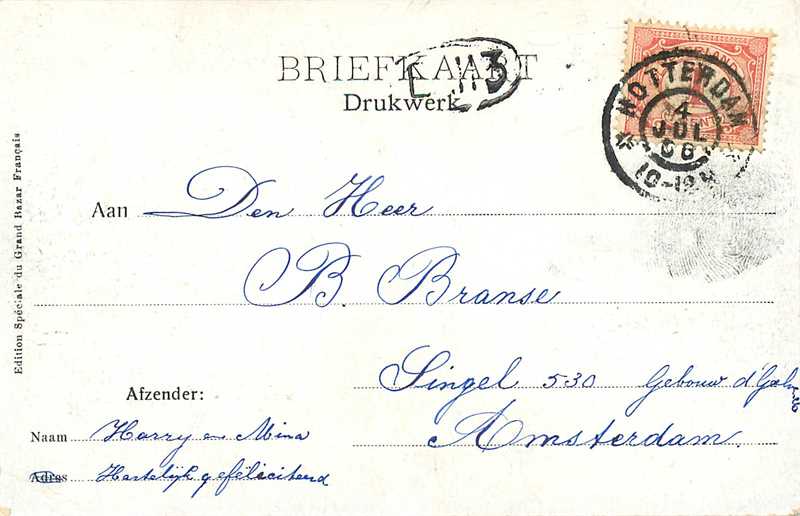 BRIEFKAART
Drukwerk
L 113
ROTTERDAM
4
JUL
06
10-12
Edition Spéciale du Grand Bazar Français
Aan Den Heer
B. Branse
Singel 530 Gebouw
Amsterdam.
Afzender:
Naam Harry en Mina
Adres Hartelijk gefeliciteerd